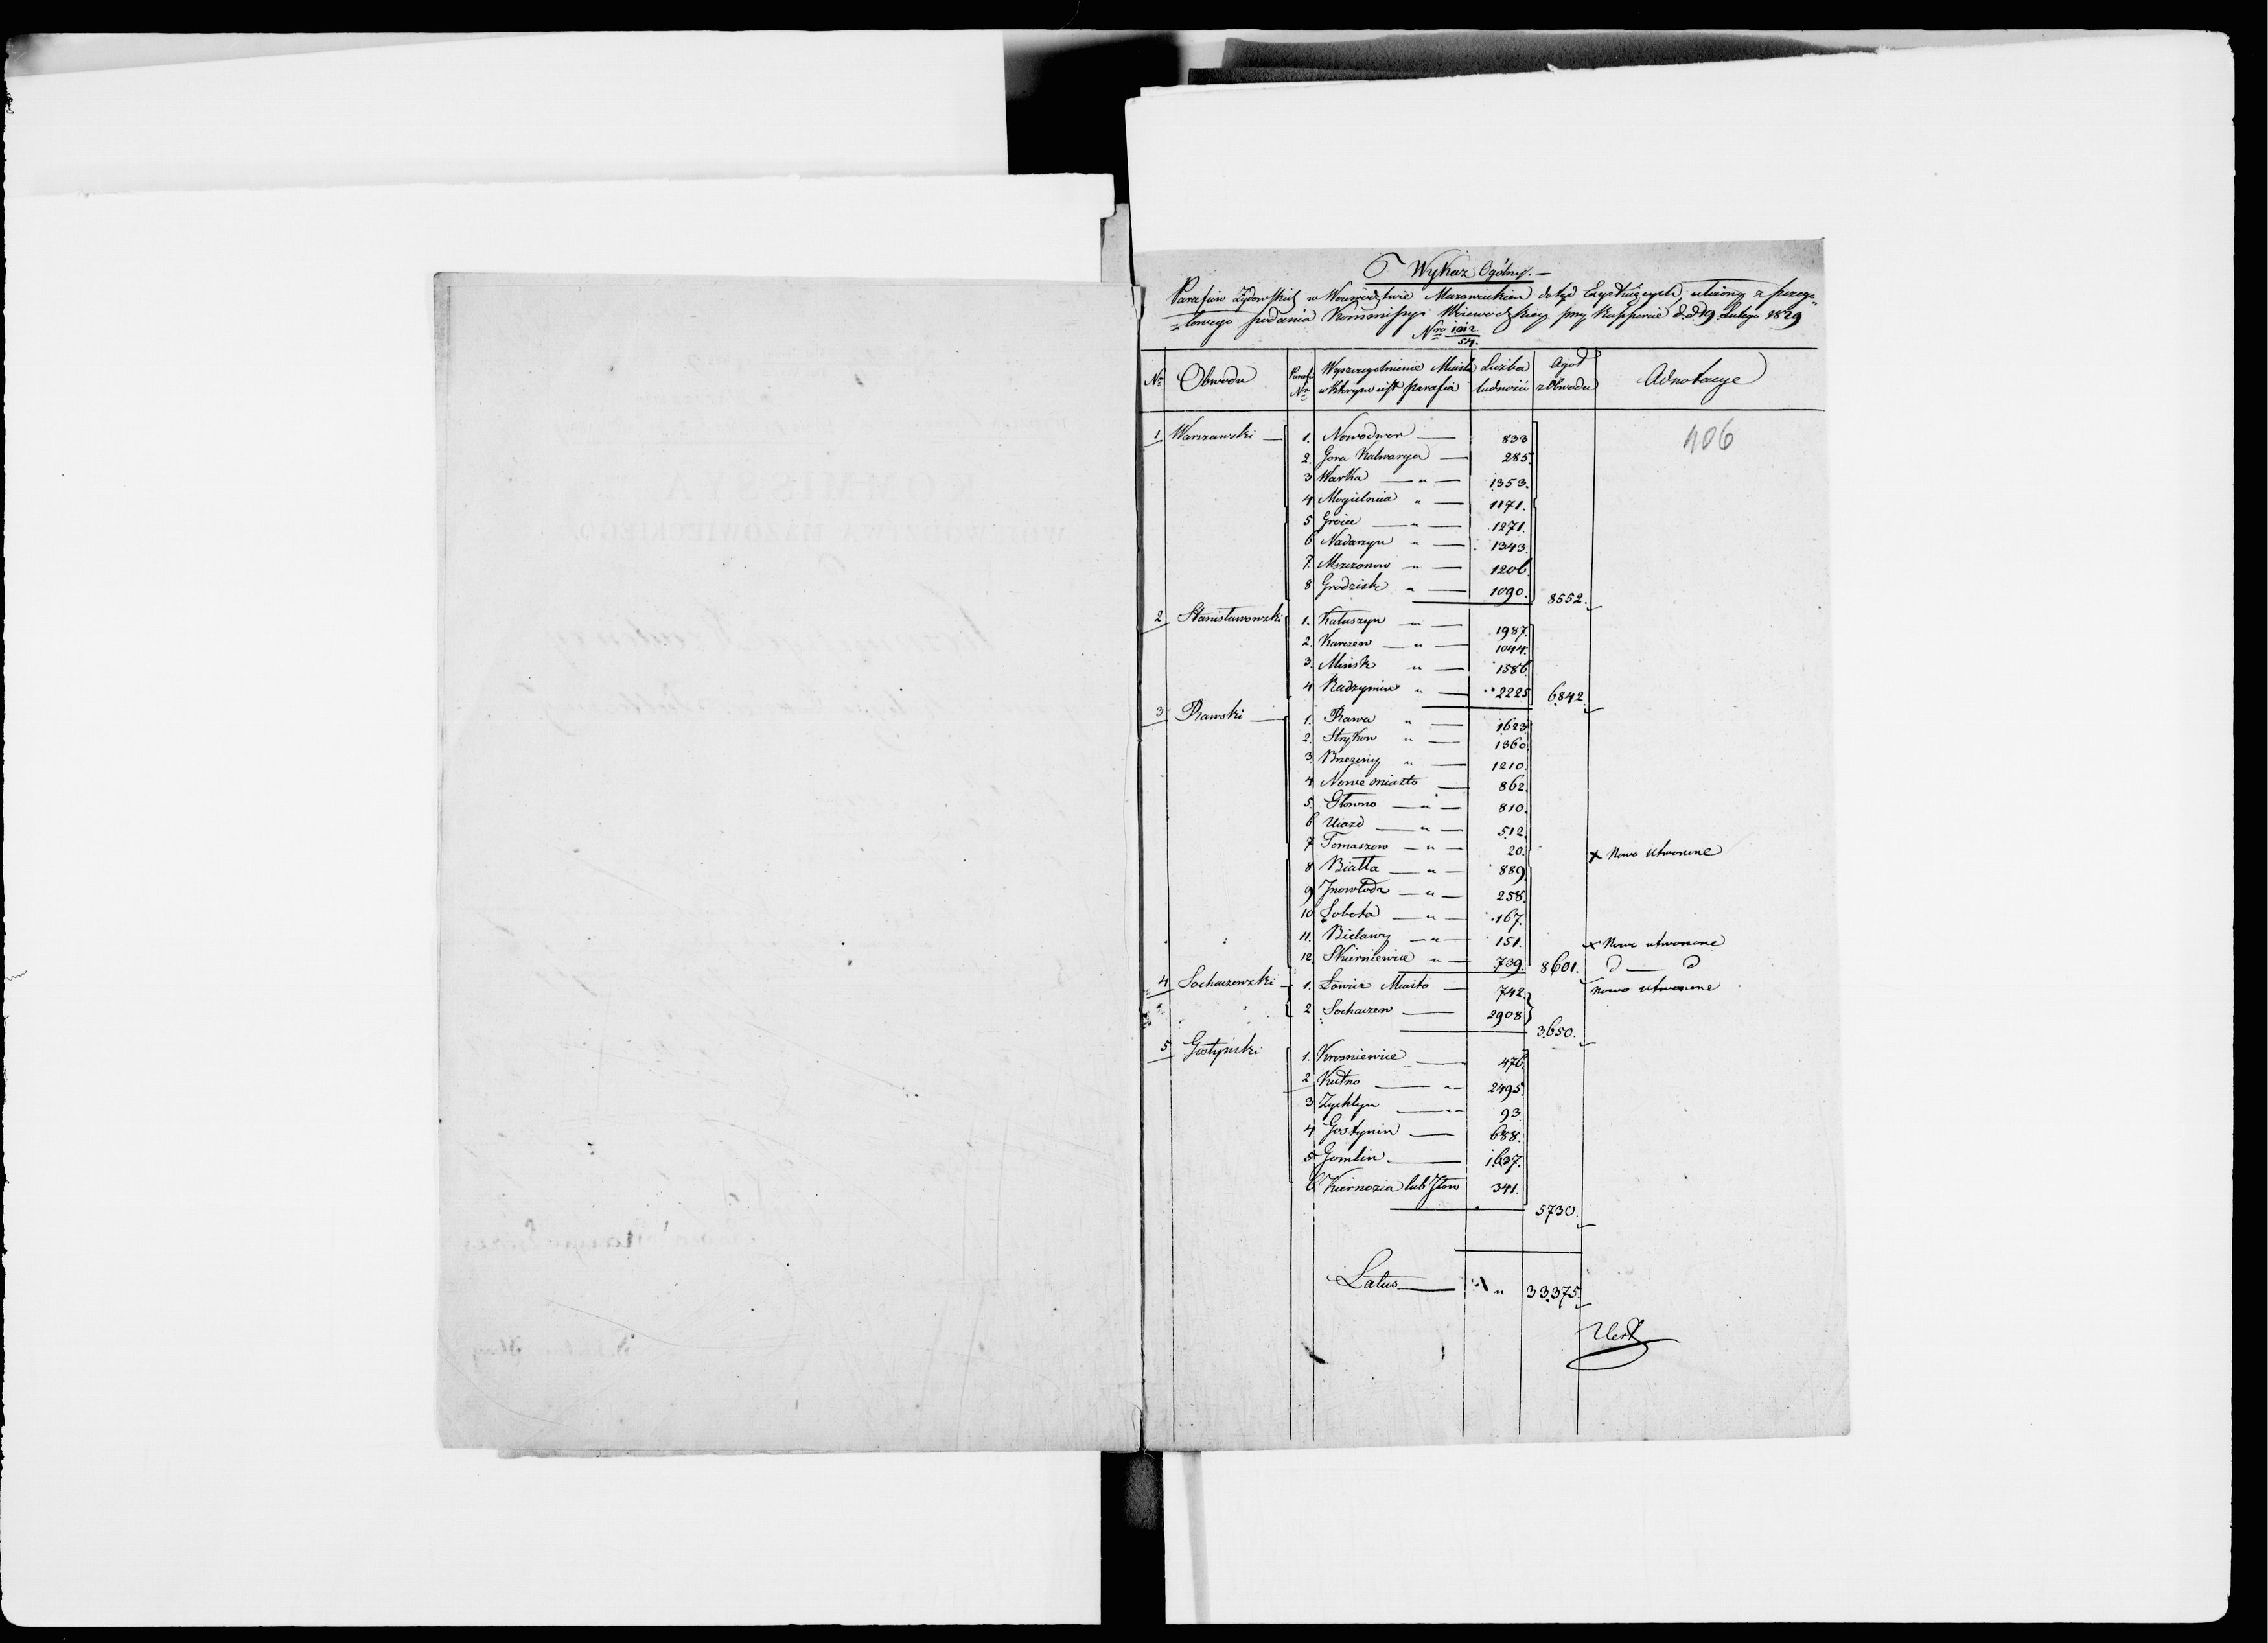 Wykaz Ogólny. —
Parafiów Żydowskich w Wojewódzwie Mazowieckiem dotąd Exystuiących, ułożony z szcze-
=łowego podania Kommissyi Woiewodzkiey przy Rapporcie d.d. 19 Lutego 1829
Nro 1012/54.
Nr Obwodu Parafi Nr Wyszczegolnienie Miasta w ktorym iest parafia Liczba ludności Ogół z Obwodu Adnotacye
406
1 Warszawski — 1. Nowodwor — 833
2. Gora Kalwarya — 285.
3 Warka — " — 1353.
4 Mogielnica " — 1171.
5 Groiec — " — 1271.
6 Nadarzyn " — 1343.
7. Mszczonow " — 1206.
8 Grodzisk " — 1090. 8552.
2 Stanisławowski 1. Kałuszyn " — 1987.
2. Karczew — " — 1044.
3. Mińsk " — 1586
4 Radzymin " — 2225 6842.
3 Rawski — 1. Rawa " — 1623
2. Stryków " — 1360.
3 Brzeziny " — 1210.
4 Nowe miasto — 862.
5. Głowno — " — 810.
6 Uiazd — " — 512.
7 Tomaszow — " — 20. x Nowo utworzone
8 Biała — " — 889.
9 Jnowłodz — " — 258.
10 Sobota — " — 167.
11. Bielawy — " — 151. x Nowo utworzone
12. Skierniewice " — 739. 8601. d — d
4 Sochaczewski — 1. Łowicz Miasto — 742. Nowo utworzone
2 Sochaczew — 2908 3650.
5 Gostyński 1. Krosniewice — 476.
2 Kutno — " 2495.
3 Zychlyn — " 93.
4 Gostynin — 688.
5 Gombin — 1637.
6 Kiernozia lub Jłow 341. 5730.
Latus — " 33,375.